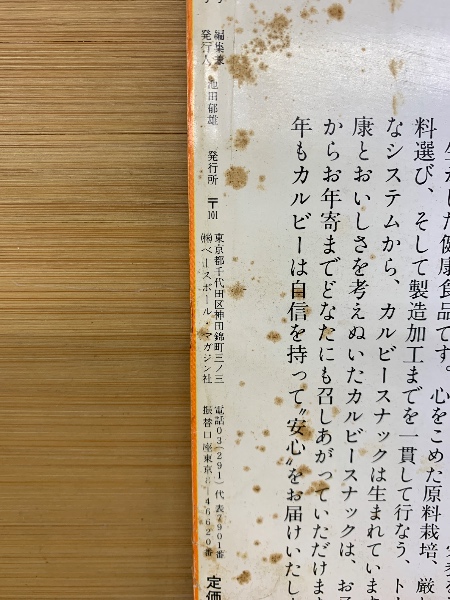 かした健康食品です。心をこめた原料栽培、厳
料選び、そして製造加工までを一貫して行なう、ト
なシステムから、カルビースナックは生まれています
康とおいしさを考えぬいたカルビースナックは、お子
からお年寄までどなたにも召しあがっていただけま
年もカルビーは自信を持って〝安心〟をお届けいたし
編集兼
発行人
池田郁雄
発行所
〒101
東京都千代田区神田錦町三ノ三
㈱ベースボール・マガジン社
電話03(291)代表7901番
振替口座東京 ―46620番
定価